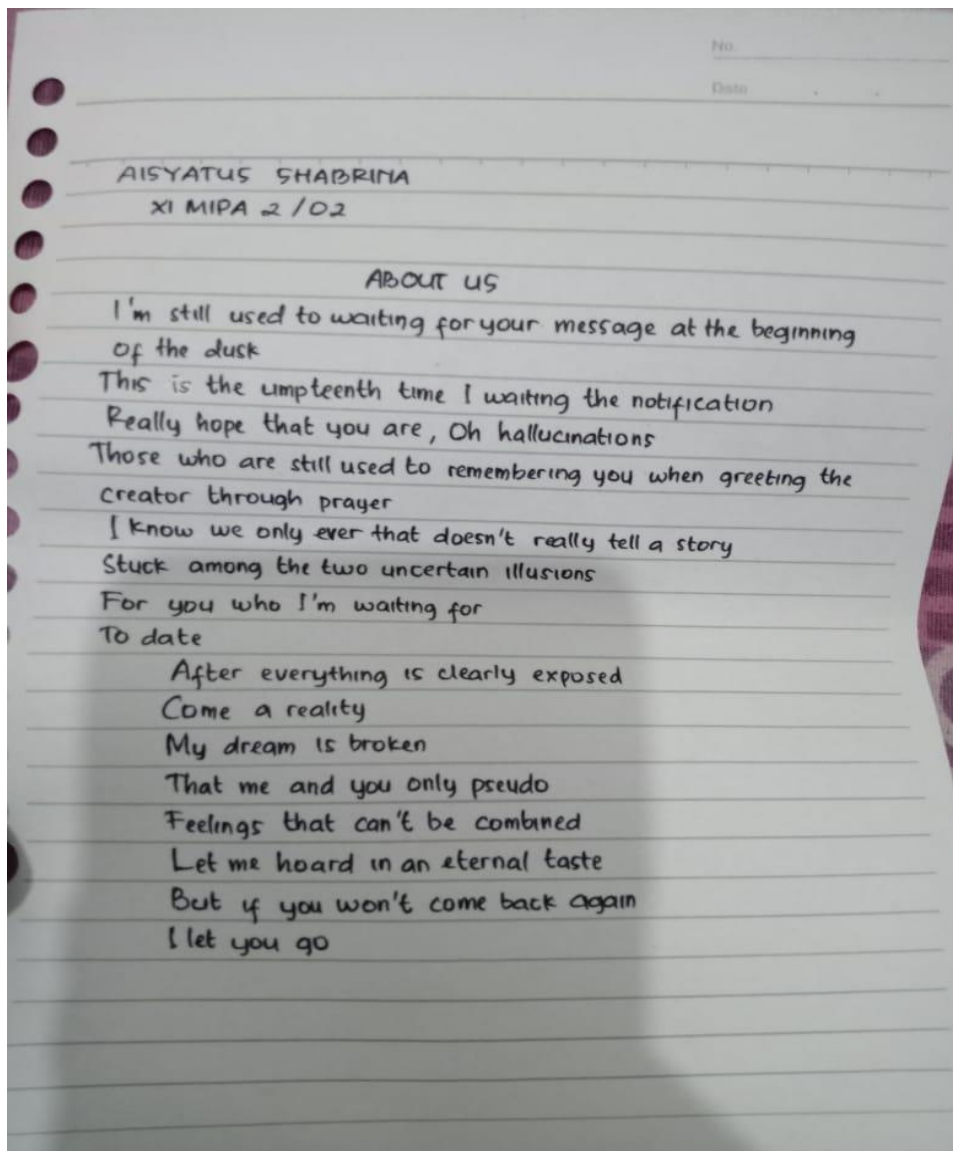 No.
Date
AISYATUS SHABRINA
XI MIPA 2 / 02
ABOUT US
I'm still used to waiting for your message at the beginning
of the dusk
This is the umpteenth time I waiting the notification
Really hope that you are, Oh hallucinations
Those who are still used to remembering you when greeting the
creator through prayer
I know we only ever that doesn't really tell a story
Stuck among the two uncertain illusions
For you who I'm waiting for
To date
After everything is clearly exposed
Come a reality
My dream is broken
That me and you only pseudo
Feelings that can't be combined
Let me hoard in an eternal taste
But if you won't come back again
I let you go